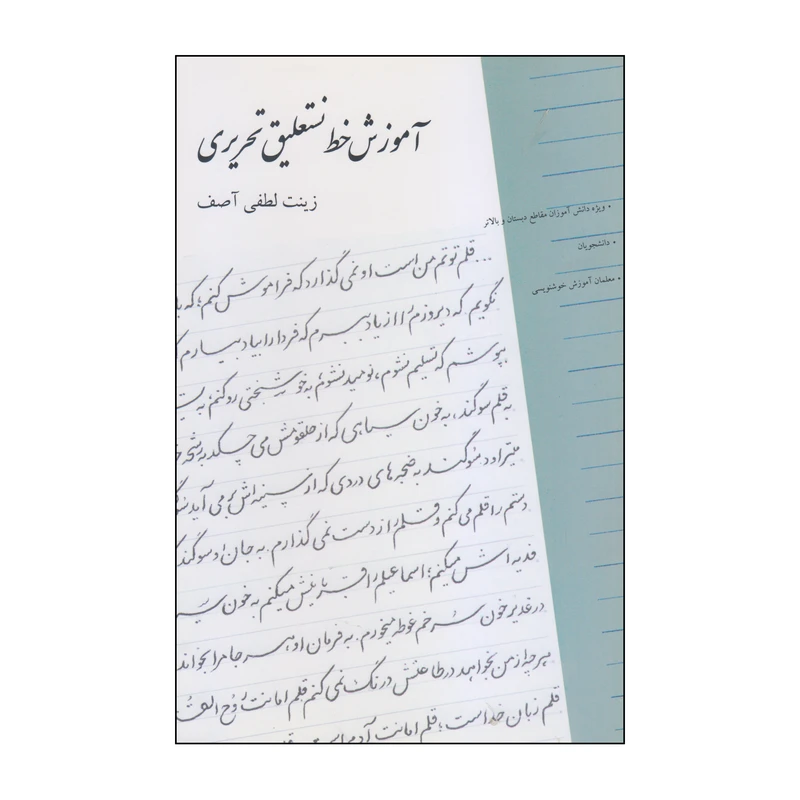 آموزش خط نستعلیق تحریری
زینت لطفی آصف
• ویژه دانش آموزان مقاطع دبستان و بالاتر
• دانشجویان
• معلمان آموزش خوشنویسی
...قلم توتم من است او نمی گذارد که فراموش کنم؛ که با
نگویم که دیروزم را از یاد ببرم که فردا را بیاد بیارم
بپوشم که تسلیم نشوم، نومید نشوم به خوشبختی رو کنم به
به قلم سوگند، به خون سیاهی که از حلقومش می چکد به رشحه
میتراود سوگند به ضجه های دردی که از سینه اش بر می آید
دستم را قلم می کنم و قلم را از دست نمی گذارم. به جان او سوگند
فدیه اش میکنم؛ اسماعیلم را قربانیش میکنم به خون
در غدیر خون سر خم غوطه میخورم. به فرمان او هر جا مرا بخواند
هر چه از من بخواهد در طاعتش درنگ نمی کنم قلم امانت روح القدس
قلم زبان خداست؛ قلم امانت آدم است